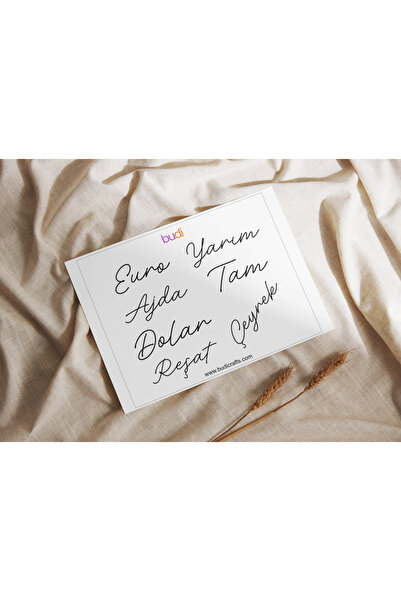 budi
Euro Yarım
Ajda Tam
Dolar
Reşat Çeyrek
www.budicrafts.com